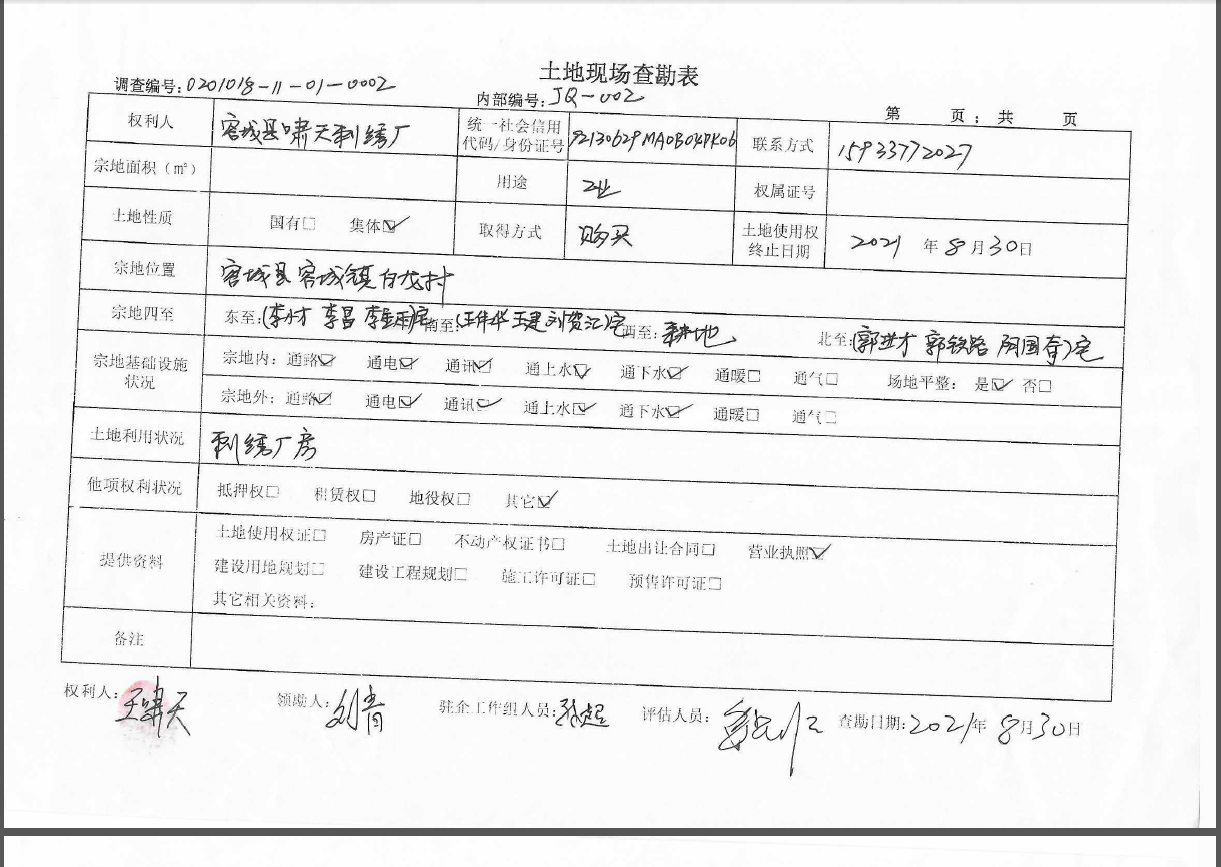 土地现场查勘表
调查编号:0201018-11-01-0002
内部编号:JQ-002
第 页;共 页
权利人 容城县啸天刺绣厂 统一社会信用代码/身份证号 92130629MA0B04PK06 联系方式 15933772027
宗地面积(㎡) 用途 工业 权属证号
土地性质 国有□ 集体☑ 取得方式 购买 土地使用权终止日期 2021年8月30日
宗地位置 容城县容城镇白龙村
宗地四至 东至:(李小才 李昌 李 )宅 南至:(王伟华 王建 刘贺江)宅 西至:耕地 北至:(郭进才 郭铁路 )宅
宗地基础设施状况 宗地内:通路☑ 通电☑ 通讯☑ 通上水☑ 通下水☑ 通暖□ 通气□ 场地平整:是☑ 否□
宗地外:通路☑ 通电☑ 通讯☑ 通上水☑ 通下水☑ 通暖□ 通气□
土地利用状况 刺绣厂房
他项权利状况 抵押权□ 租赁权□ 地役权□ 其它☑
提供资料 土地使用权证□ 房产证□ 不动产权证书□ 土地出让合同□ 营业执照☑
建设用地规划□ 建设工程规划□ 施工许可证□ 预售许可证□
其它相关资料:
备注
权利人:王啸天 领勘人:刘青 驻企工作组人员:张超 评估人员: 查勘日期:2021年8月30日